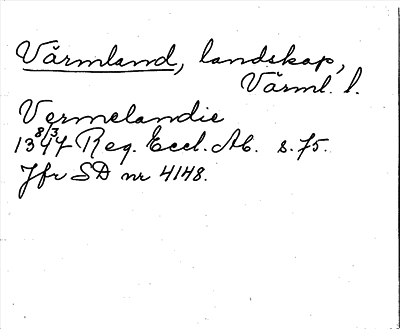 Värmland, landskap,
Värml. l.
Vermelandie
1347 8/3 Reg. Eccl. Ab. s. 75.
Jfr SD nr 4148.